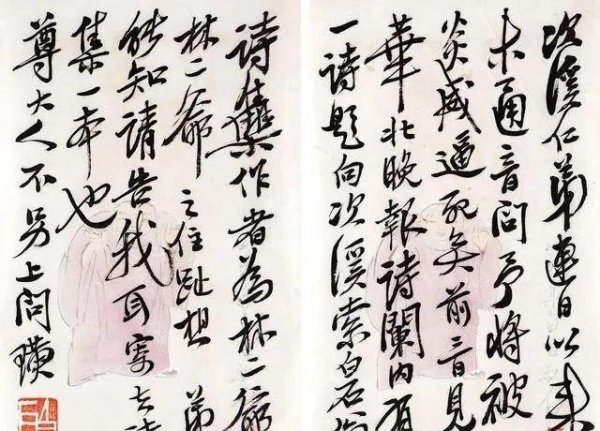 次溪仁弟連日以来
未通音問予將被
炎威逼死矣前日見
華北晚報詩闌內有
一詩題向次溪索白石
詩集作者為林二爺
林二爺之住趾想弟
能知請告我耳寄去
集一本也
尊大人不另上問璜